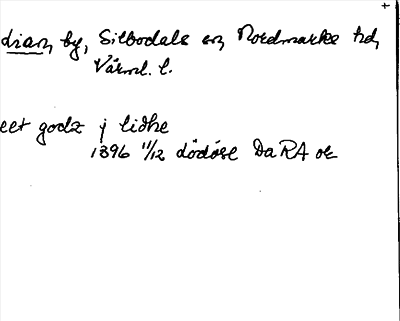 dian, by, Silbodals sn, Nordmarks hd,
Värml. l.
eet godz j lidhe
1396 11/12 dödöse DaRA or